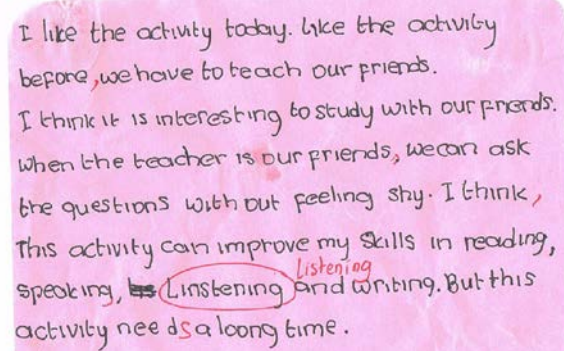 I like the activity today. Like the activity
before, we have to teach our friends.
I think it is interesting to study with our friends.
When the teacher is our friends, we can ask
the questions with out feeling shy. I think,
This activity can improve my skills in reading,
Listening
speaking, Linstening and writing. But this
activity needs a loong time.